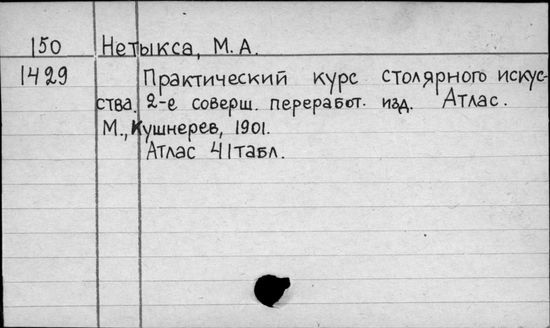 150 Нетыкса, М. А.
1429 Практический курс столярного искус-
ства. 2-е соверш. переработ. изд. Атлас.
М., Кушнерев, 1901.
Атлас 41 табл.